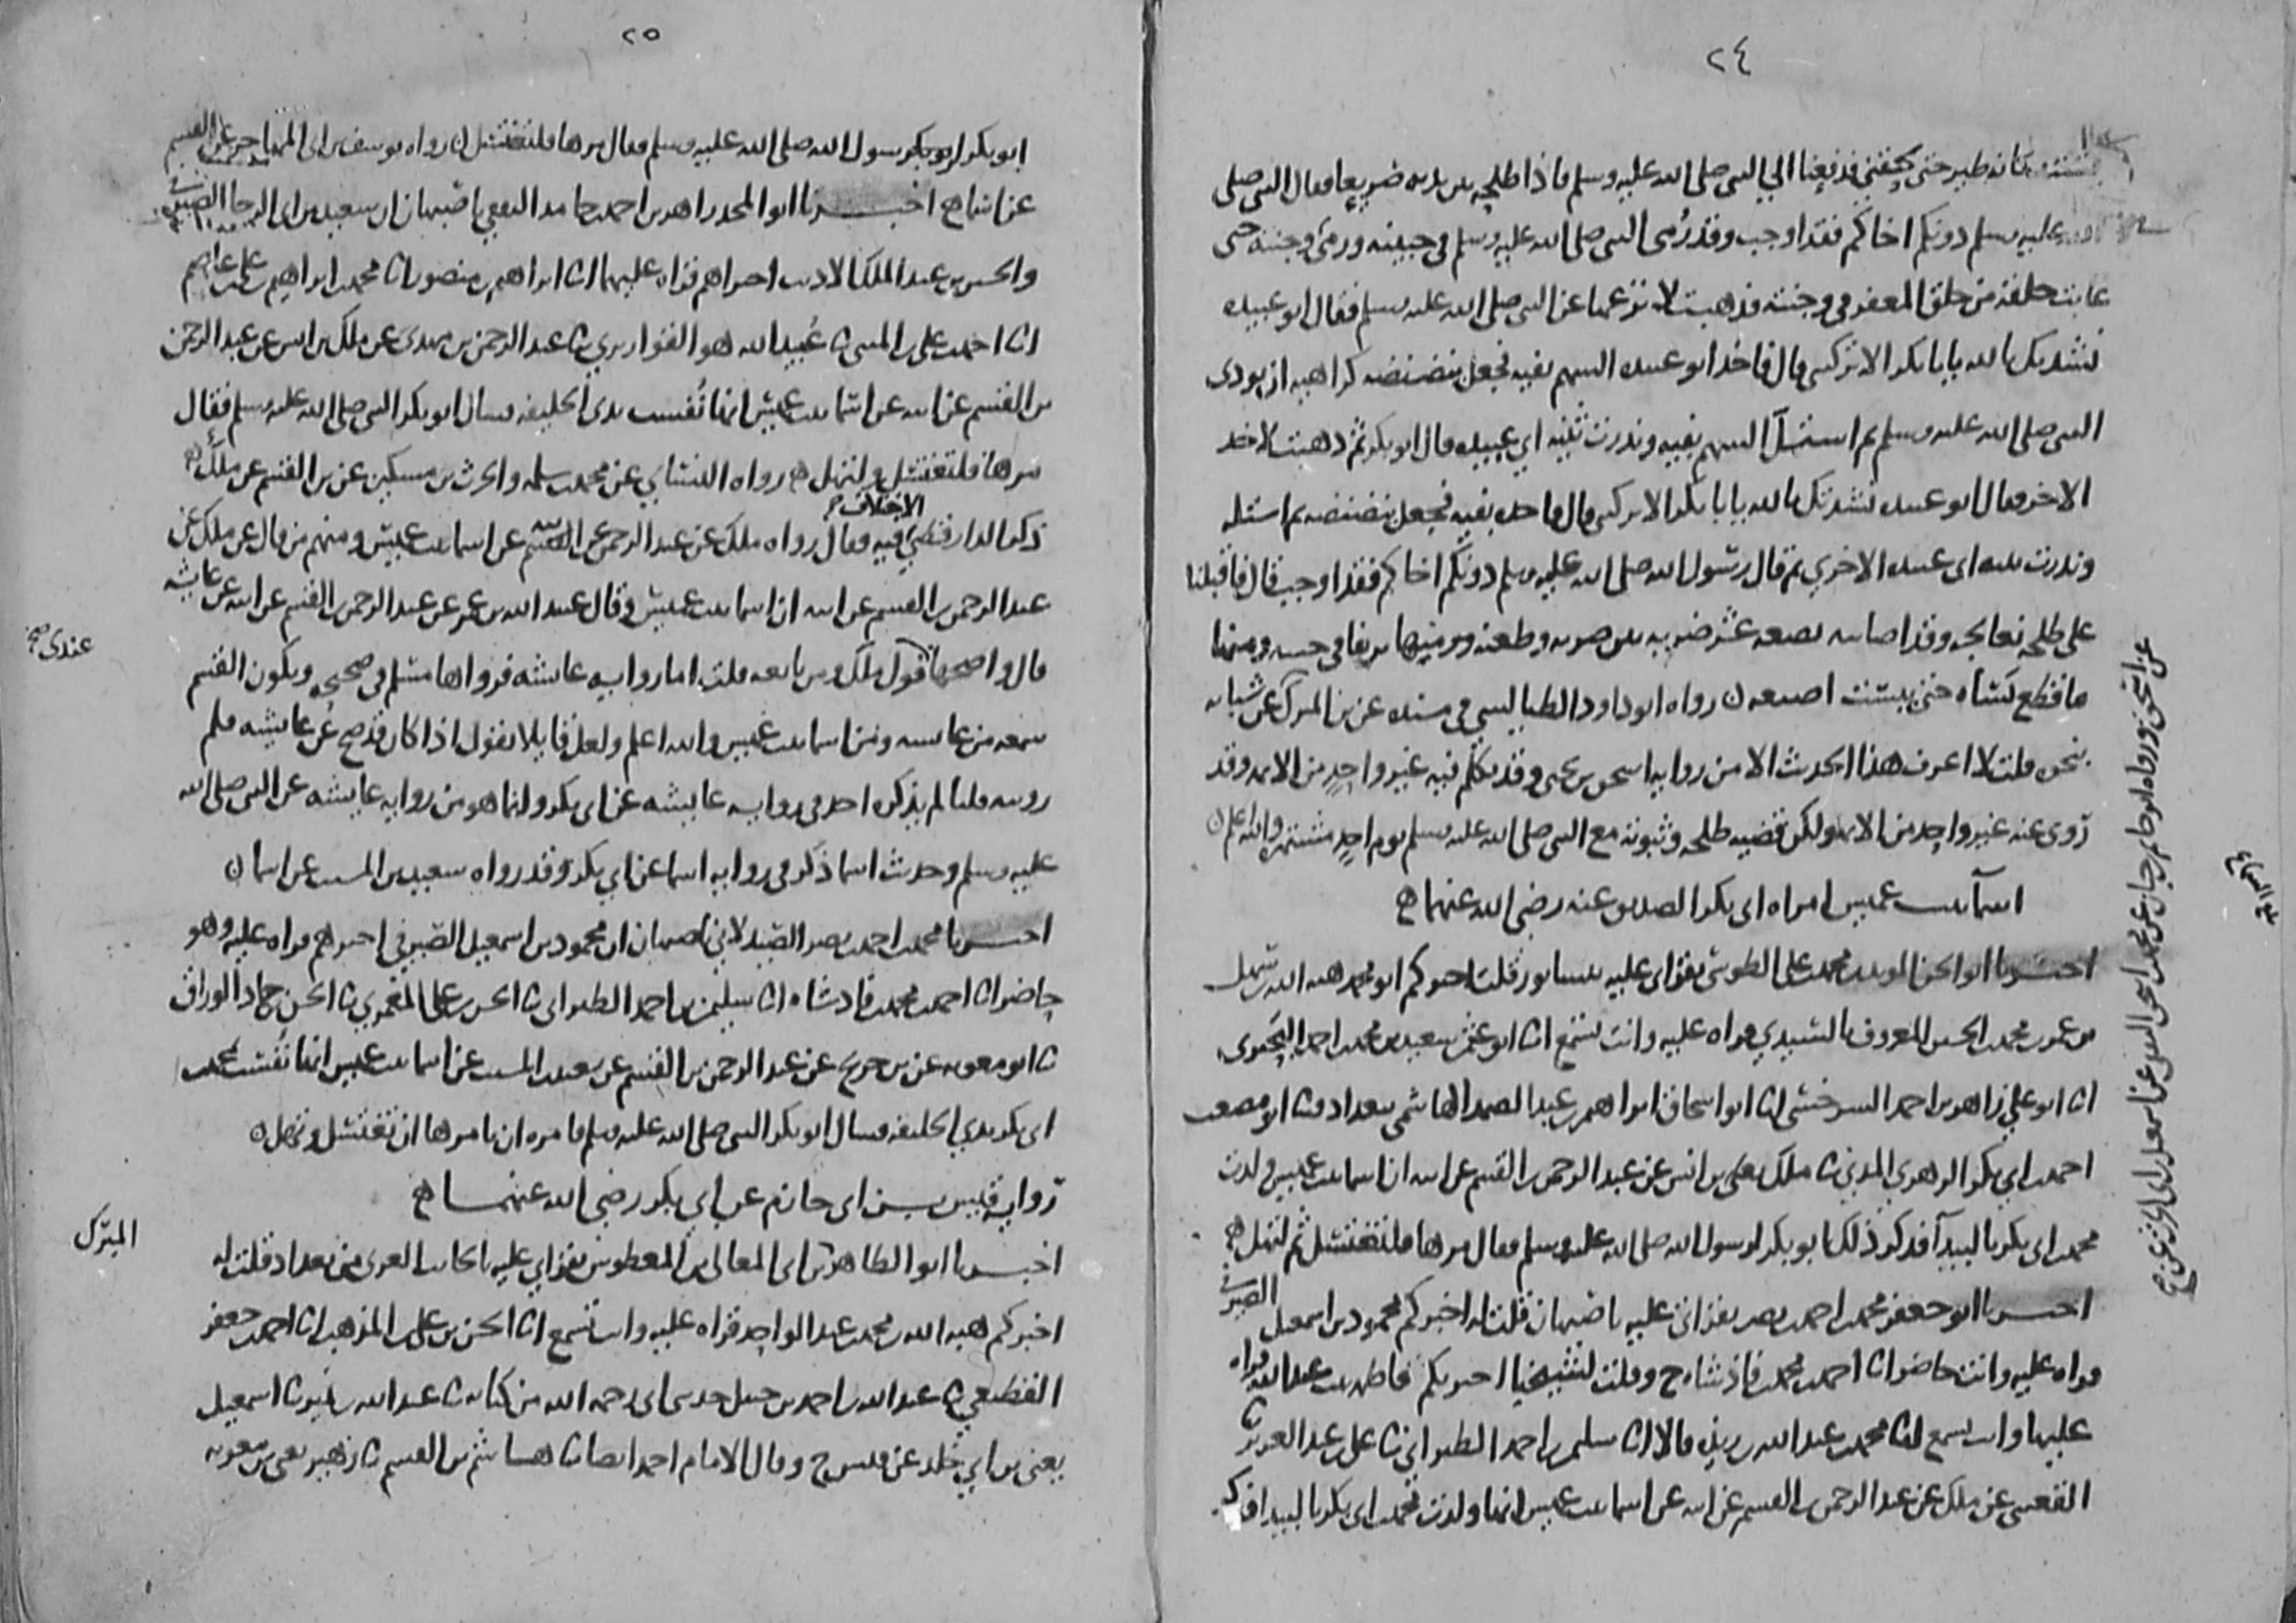 ٢٤
كانه طير حتى لحقني فدفعنا الي النبي صلى الله عليه وسلم فاذا طلحه بين يديه صريعا فقال النبي صلى
الله عليه وسلم دونكم اخاكم فقد اوجب وقد رُمى النبي صلى الله عليه وسلم في جبينه ورمى وجنته حتى
غابت حلقه من حلق المغفر في وجنته فذهبت لانزعها عن النبي صلى الله عليه وسلم فقال ابو عبيده
نشدتك بالله يابا بكر الا تركتني قال فاخذ ابو عبيده السهم بفيه فجعل ينضنضه كراهيه ان يوذي
النبي صلى الله عليه وسلم ثم استلّ السهم بفيه وندرت ثنيه ابي عبيده قال ابو بكر ثم ذهبت لاخذ
الاخر فقال ابو عبيده نشدتك بالله يابا بكر الا تركتني قال فاخذه بفيه فجعل ينضنضه ثم استله
وندرت ثنيه ابي عبيده الاخري ثم قال رسول الله صلى الله عليه وسلم دونكم اخاكم فقد اوجب قال فاقبلنا
على طلحه نعالجه وقد اصابته بضعه عشر ضربه بين ضربه وطعنه ورميه
ما قطع نساه حتى يبست اصبعه رواه ابو داود الطيالسي في مسنده عن بن المبرك عن
بنحوه قلت لا اعرف هذا الحديث الا من روايه اسحق بن يحيى وقد تكلم فيه غير واحد من الايمه وقد
روى عنه غير واحد من الايمه ولكن قضيه طلحه وثبوته مع النبي صلى الله عليه وسلم يوم احد مشتهره والله اعلم
اسما بنت عميس امراه ابي بكر الصديق عنه رضي الله عنهما
اخبرنا ابو الحسن المويد بن محمد بن علي الطوسي بقراتي عليه بنيسابور قلت اخبركم ابو محمد هبه الله بن سهل
بن عمر بن محمد بن الحسين المعروف بالسيدي قراه عليه وانت تسمع انا ابو عثمن سعيد بن محمد بن احمد البحيري
انا ابو علي زاهر بن احمد السرخسي انا ابو اسحاق ابراهيم بن عبد الصمد الهاشمي ببغداد نا ابو مصعب
احمد بن ابي بكر الزهري المديني نا ملك يعني بن انس عن عبد الرحمن بن القسم عن ابيه ان اسما بنت عميس ولدت
محمد بن ابي بكر بالبيدآ فذكر ذلك ابو بكر لرسول الله صلى الله عليه وسلم فقال مرها فلتغتسل ثم لتهل
اخبرنا ابو جعفر محمد بن احمد بن نصر بقراتي عليه باصبهان قلت له اخبركم محمود بن اسمعيل الصيرفي
قراه عليه وانت حاضر انا احمد بن محمد بن فاذشاه ح وقلت لشيخنا اخبرتكم فاطمه بنت عبد الله قراه
عليها وانت تسمع انا محمد بن عبد الله بن ريذه قالا انا سليمن بن احمد الطبراني نا علي بن عبد العزيز نا
القعنبي عن ملك عن عبد الرحمن بن القسم عن ابيه عن اسما بنت عميس انها ولدت محمد بن ابي بكر بالبيدا فذكر
٢٥
ابو بكر لرسول الله صلى الله عليه وسلم فقال مرها فلتغتسل رواه يوسف بن ابي
اخبرنا ابو المجد زاهر بن احمد بن حامد الثقفي باصبهان ان سعيد بن ابي الرجا الصيرفي
والحسين بن عبد الملك الاديب اخبراهم قراه عليهما انا ابراهيم بن منصور انا محمد بن ابراهيم بن علي بن عاصم
انا احمد بن علي بن المثنى نا عُبيد الله هو القواريري نا عبد الرحمن بن مهدي عن ملك بن انس عن عبد الرحمن
بن القسم عن ابيه عن اسما بنت عميس انها نُفست بذي الحليفه فسال ابو بكر النبي صلى الله عليه وسلم فقال
مرها فلتغتسل ولتهل رواه النسائي عن محمد بن سلمه والحرث بن مسكين عن بن القسم عن ملك
ذكر الدارقطني الاختلاف فيه فقال رواه ملك عن عبد الرحمن بن القسم عن ابيه عن اسما بنت عميس ومنهم من قال عن ملك عن
عبد الرحمن بن القسم عن ابيه ان اسما بنت عميس وقال عبيد الله بن عمر عن عبد الرحمن بن القسم عن ابيه عن عايشه
قال واصحها عندي قول ملك ومن تابعه قلت اما روايه عايشه فرواها مسلم في صحيحه ويكون القسم
سمعه من عايشه ومن اسما بنت عميس والله اعلم ولعل قايلا يقول اذا كان قد صح عن عايشه فلم
رويته قلنا لم يذكره احد في روايه عايشه عن ابي بكر وانما هو من روايه عايشه عن النبي صلى الله
عليه وسلم وحديث اسما ذكر في روايه اسما عن ابي بكر وقد رواه سعيد بن المسيب عن اسما
اخبرنا محمد بن احمد بن نصر الصيدلاني باصبهان ان محمود بن اسمعيل الصيرفي اخبرهم قراه عليه وهو
حاضر انا احمد بن محمد بن فاذشاه انا سليمن بن احمد الطبراني نا الحسن بن علي المعمري نا الحسن بن حماد الوراق
نا ابو معويه عن بن جريج عن عبد الرحمن بن القسم عن سعيد بن المسيب عن اسما بنت عميس انها نُفست بمحمد بن
ابي بكر بذي الحليفه فسال ابو بكر النبي صلى الله عليه وسلم فامره ان يامرها ان تغتسل وتهل
روايه قيس بن ابي حازم عن ابي بكر رضي الله عنهما
اخبرنا ابو الطاهر المبرك بن ابي المعالي بن المعطوش بقراتي عليه بالجانب الغربي من بغداد قلت له
اخبركم هبه الله بن محمد بن عبد الواحد قراه عليه وانت تسمع انا الحسن بن علي بن المذهب انا احمد بن جعفر
القطيعي نا عبد الله بن احمد بن حنبل حدثني ابي رحمه الله من كتابه نا عبد الله بن نمير نا اسمعيل
يعني بن ابي خلد عن قيس ح وقال الامام احمد ايضا نا هاشم بن القسم نا زهير يعني بن معويه